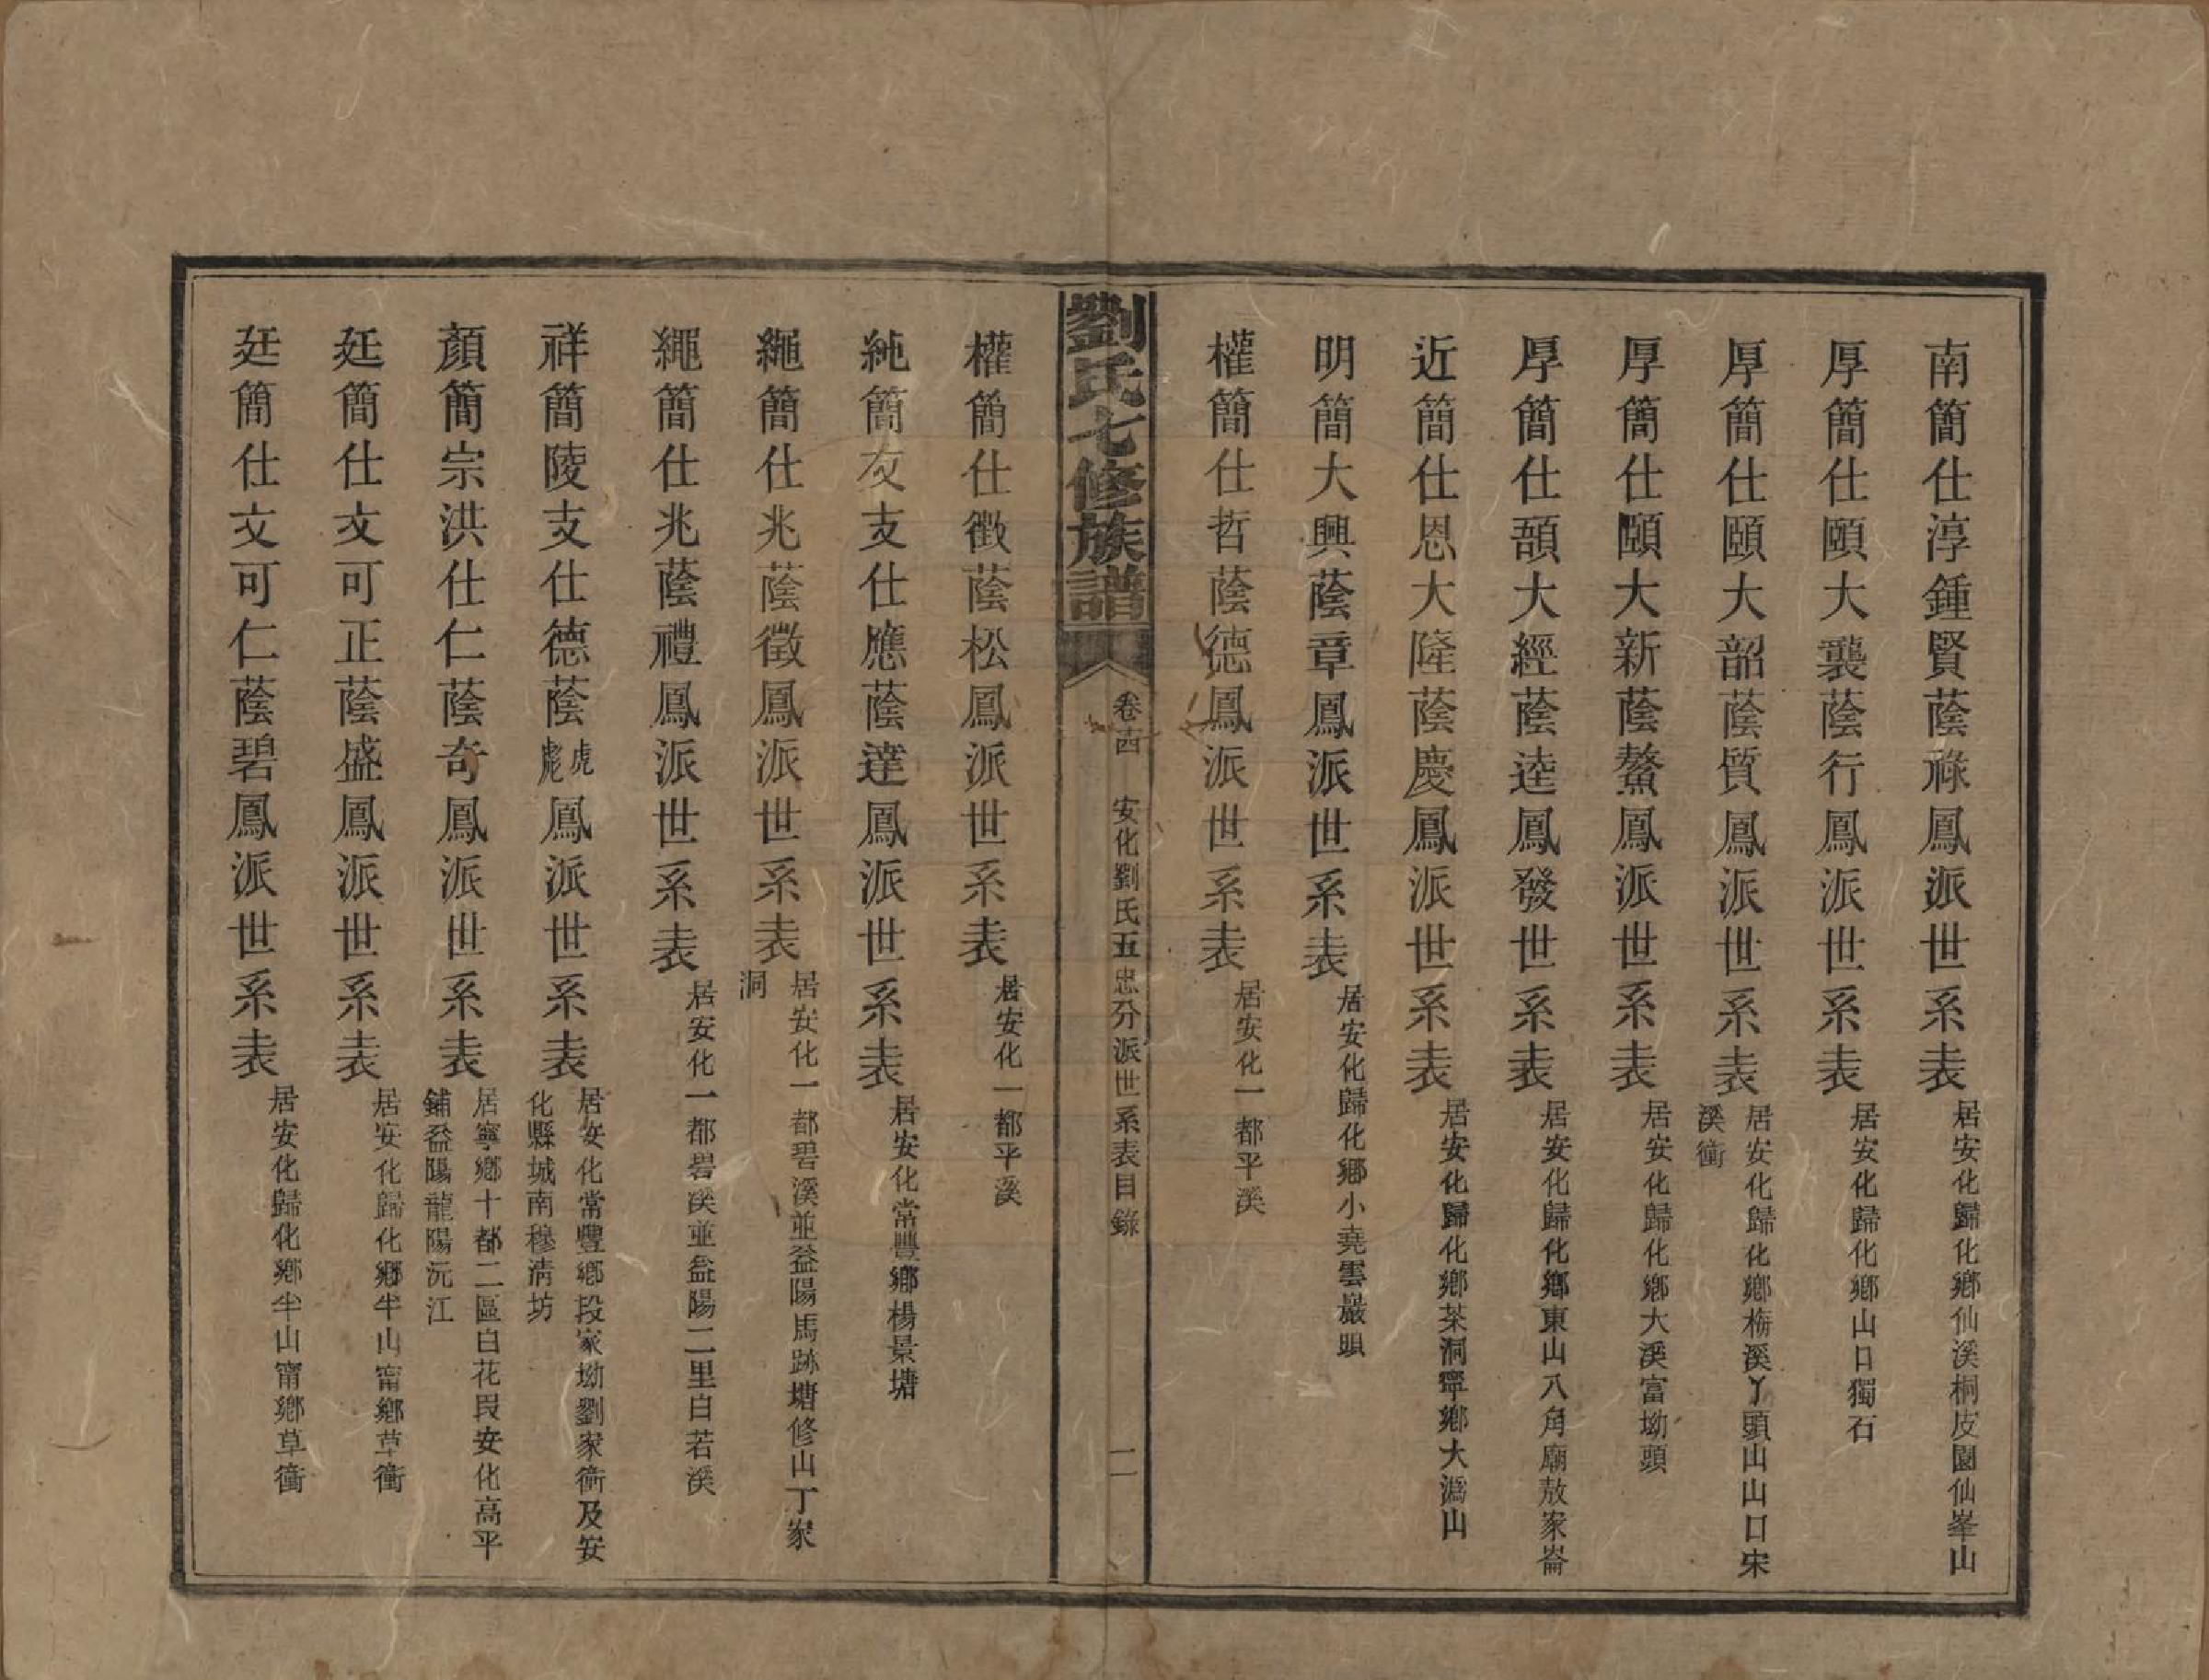 南簡仕淳鍾賢蔭祿鳳派世系表居安化歸化鄉仙溪桐皮園仙峯山
厚簡仕頤大襲蔭行鳳派世系表居安化歸化鄉山口獨石
厚簡仕頤大韶蔭質鳳派世系表居安化歸化鄉梅溪丫頭山山口宋
溪衝
厚簡仕頤大新蔭鰲鳳派世系表居安化歸化鄉大溪富坳頭
厚簡仕頡大經蔭逵鳳發世系表居安化歸化鄉東山八角廟敖家崙
近簡仕恩大隆蔭慶鳳派世系表居安化歸化鄉茶洞寧鄉大溈山
明簡大興蔭章鳳派世系表居安化歸化鄉小堯雲巖頭
權簡仕哲蔭德鳳派世系表居安化一都平溪
劉氏七修族譜 卷十四 安化劉氏五忠分派世系表目錄 二
權簡仕徵蔭松鳳派世系表居安化一都平溪
純簡友支仕應蔭達鳳派世系表居安化常豐鄉楊景塘
繩簡仕兆蔭徵鳳派世系表居安化一都碧溪並益陽馬跡塘修山丁家
洞
繩簡仕兆蔭禮鳳派世系表居安化一都碧溪並益陽二里白若溪
祥簡陵支仕德蔭虎彪鳳派世系表居安化常豐鄉段家坳劉家衝及安
化縣城南穆清坊
顏簡宗洪仕仁蔭奇鳳派世系表居寧鄉十都二區白花段安化高平
鋪益陽龍陽沅江
廷簡仕文可正蔭盛鳳派世系表居安化歸化鄉半山甯鄉草衝
廷簡仕文可仁蔭碧鳳派世系表居安化歸化鄉半山甯鄉草衝